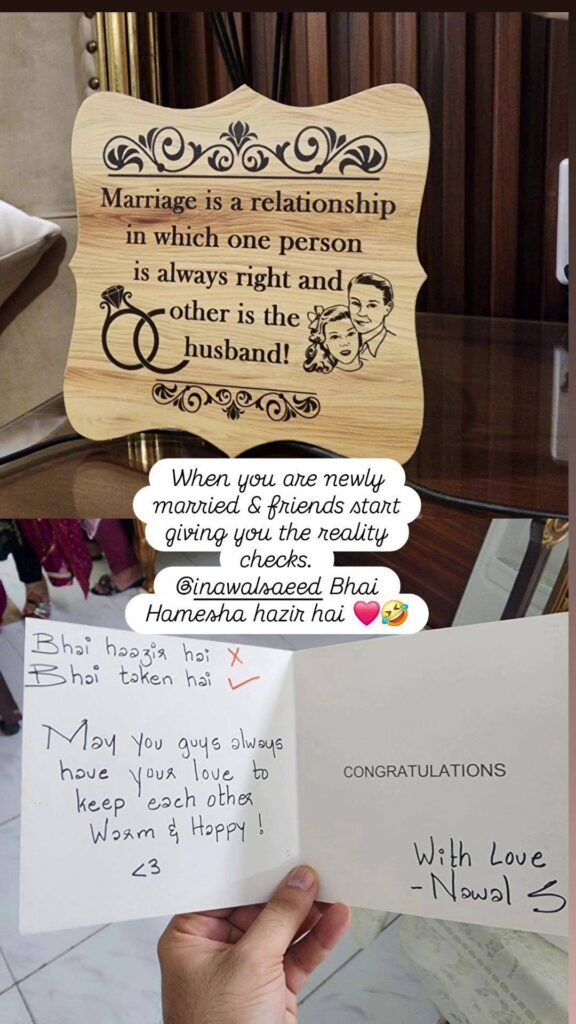 Marriage is a relationship
in which one person
is always right and
other is the
husband!
When you are newly
married & friends start
giving you the reality
checks.
@inawalsaeed Bhai
Hamesha hazir hai ❤️🤣
Bhai haazir hai ✗
Bhai taken hai ✓
May you guys always
have your love to
keep each other
Warm & Happy!
<3
CONGRATULATIONS
With Love
- Nawal S